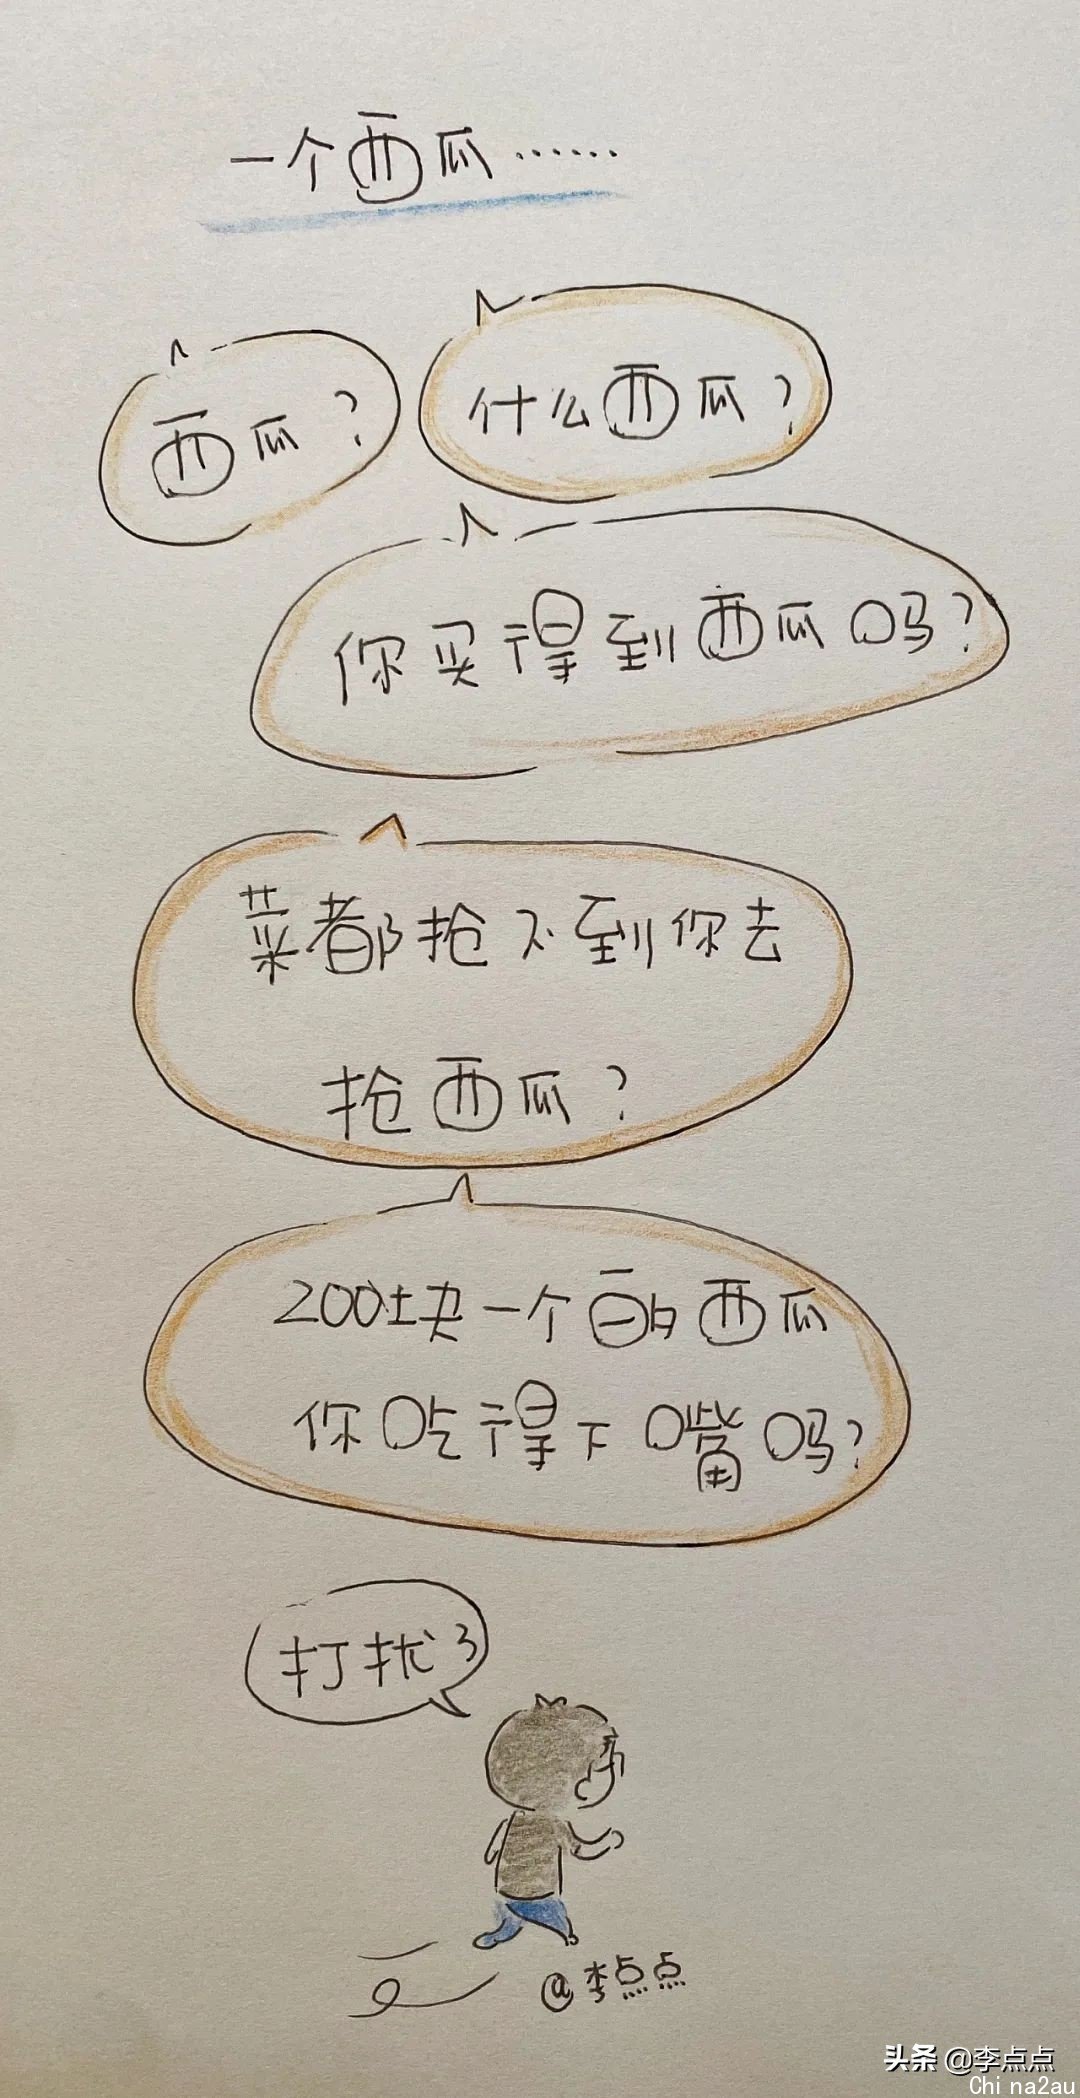 一个西瓜……
西瓜？
什么西瓜？
你买得到西瓜吗？
菜都抢不到你去
抢西瓜？
200块一个的西瓜
你吃得下嘴吗？
打扰了
@李点点
头条 @李点点
Chi na2au